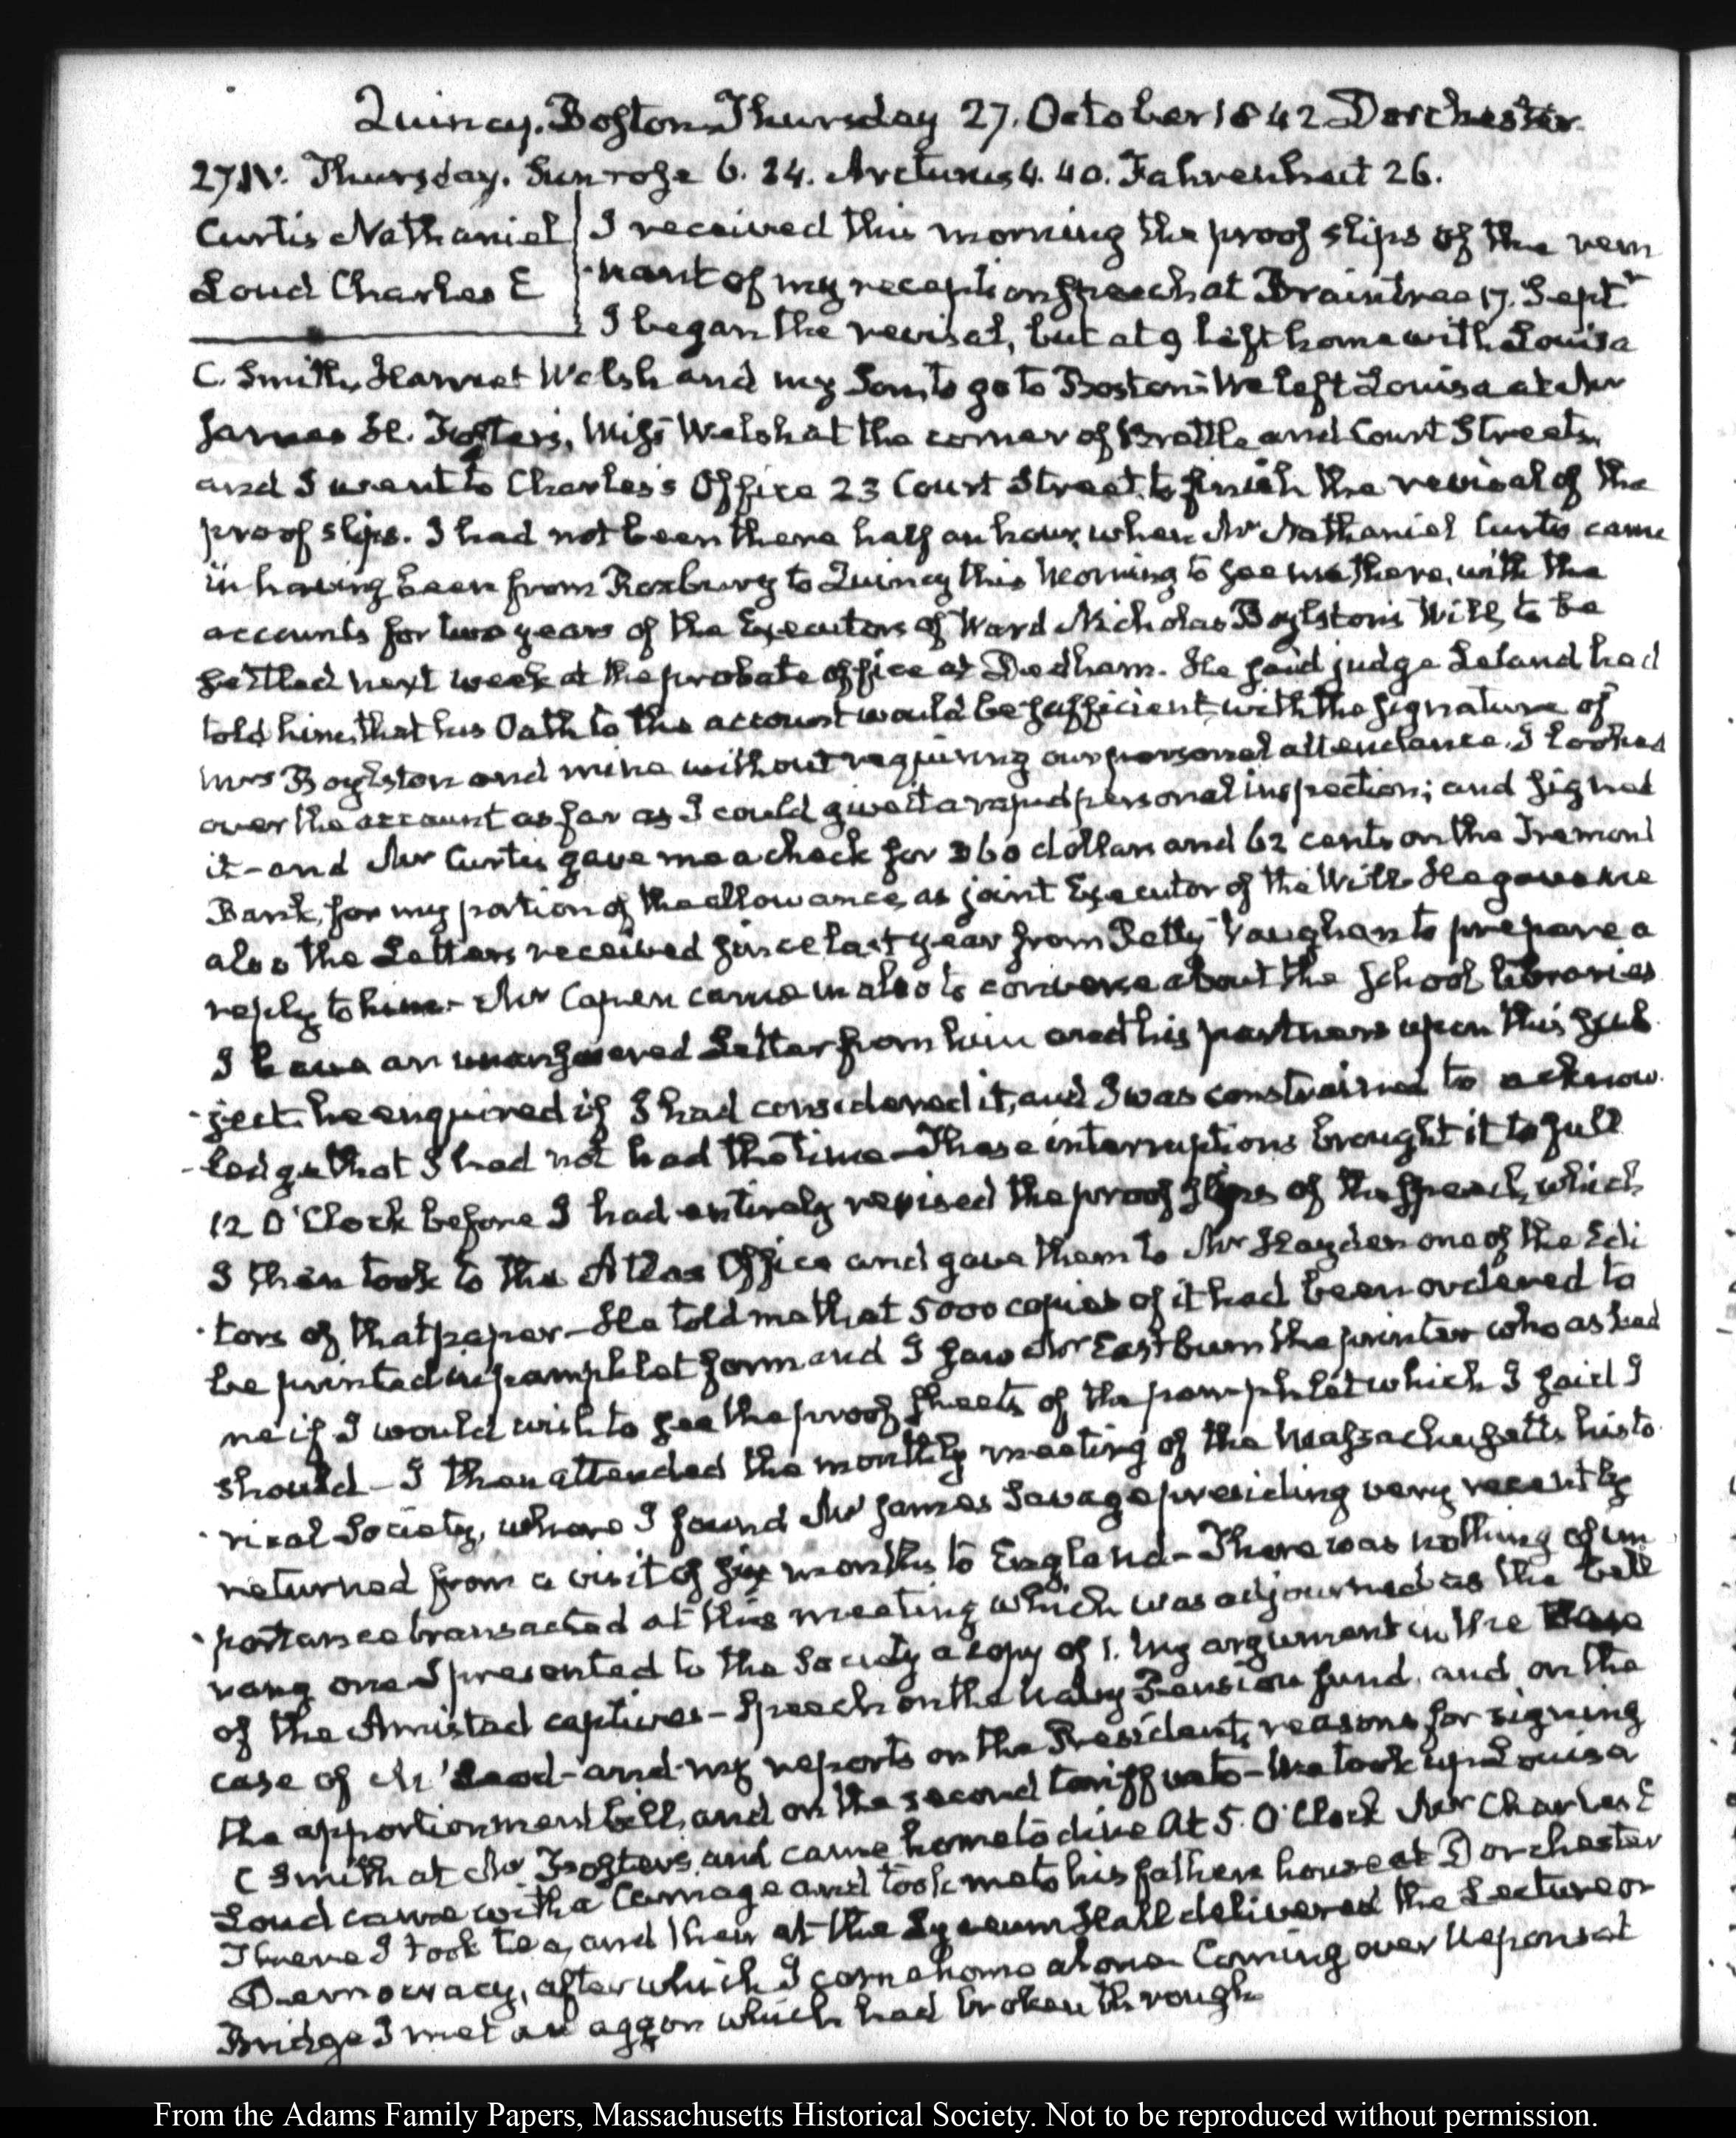 Quincy. Boston Thursday 27. October 1842 Dorchester.
27. IV. Thursday. Sun rose 6. 24. Arcturus 4. 40. Fahrenheit 26.
Curtis Nathaniel
Loud Charles E
I received this morning the proof slips of the rem
-nant of my reception speech at Braintree 17. Septr
I began the revisal, but at 9 left home with Louisa
C. Smith, Harriet Welsh and my Son, to go to Boston. We left Louisa at Mr
James H. Foster's, Miss Welsh at the corner of Brattle and Court Streets,
and I went to Charles's Office 23 Court Street, to finish the revisal of the
proof slips. I had not been there half an hour, when Mr Nathaniel Curtis came
in having been from Roxbury to Quincy this Morning to see me there, with the
accounts for two years of the Executors of Ward Nicholas Boylston's Will, to be
settled next week at the probate office at Dedham. He said judge Leland had
told him, that his Oath to the account would be sufficient, with the signature of
Mrs Boylston and mine without requiring our personal attendance. I looked
over the account as far as I could give it a rapid personal inspection; and signed
it - and Mr Curtis gave me a check for 360 dollars and 62 cents on the Tremont
Bank, for my portion of the allowance, as joint Executor of the Will. He gave me
also the Letters received since last year from Petty Vaughan to prepare a
reply to him - Mr Capen came in also to converse about the school libraries
I have an unanswered Letter from him and his partners upon this sub
-ject. he enquired if I had considered it, and I was constrained to acknow
-ledge that I had not had the time - These interruptions brought it to full
12 O'Clock before I had entirely revised the proof slips of the speech, which
I then took to the Atlas Office and gave them to Mr Hayden one of the Edi
-tors of that paper - He told me that 5000 copies of it had been ordered to
be printed in pamphlet form and I saw Mr Eastburn the printer who asked
me if I would wish to see the proof sheets of the pamphlet which I said I
should - I then attended the monthly meeting of the Massachusetts histo
-rical Society, where I found Mr James Savage presiding very recently
returned from a visit of six months to England - There was nothing of im
-portance transacted at this meeting which was adjourned as the bell
rang one. I presented to the Society a copy of 1. My argument in the Case
of the Amistad captives - Speech on the Navy Pension fund, and on the
case of McLeod - and my reports on the President's reasons for signing
the apportionment bill, and on the second tariff veto - We took up Louisa
C Smith at Mr Foster's, and came home to dine At 5. O'Clock Mr Charles E
Loud came with a Carriage and took me to his fathers house at Dorchester
There I took tea, and then at the Lyceum Hall delivered the Lecture on
Democracy, after which I came home alone. Coming over Neponset
Bridge I met a waggon which had broken through
From the Adams Family Papers, Massachusetts Historical Society. Not to be reproduced without permission.